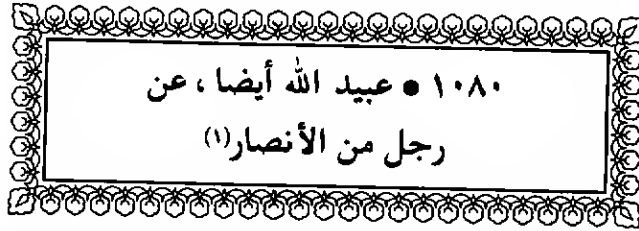 ١٠٨٠ ● عبيد الله أيضا ، عن
رجل من الأنصار(١)